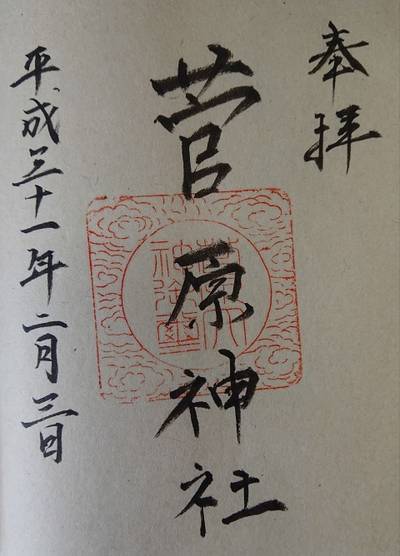 奉拝
菅原神社
平成三十一年二月三日